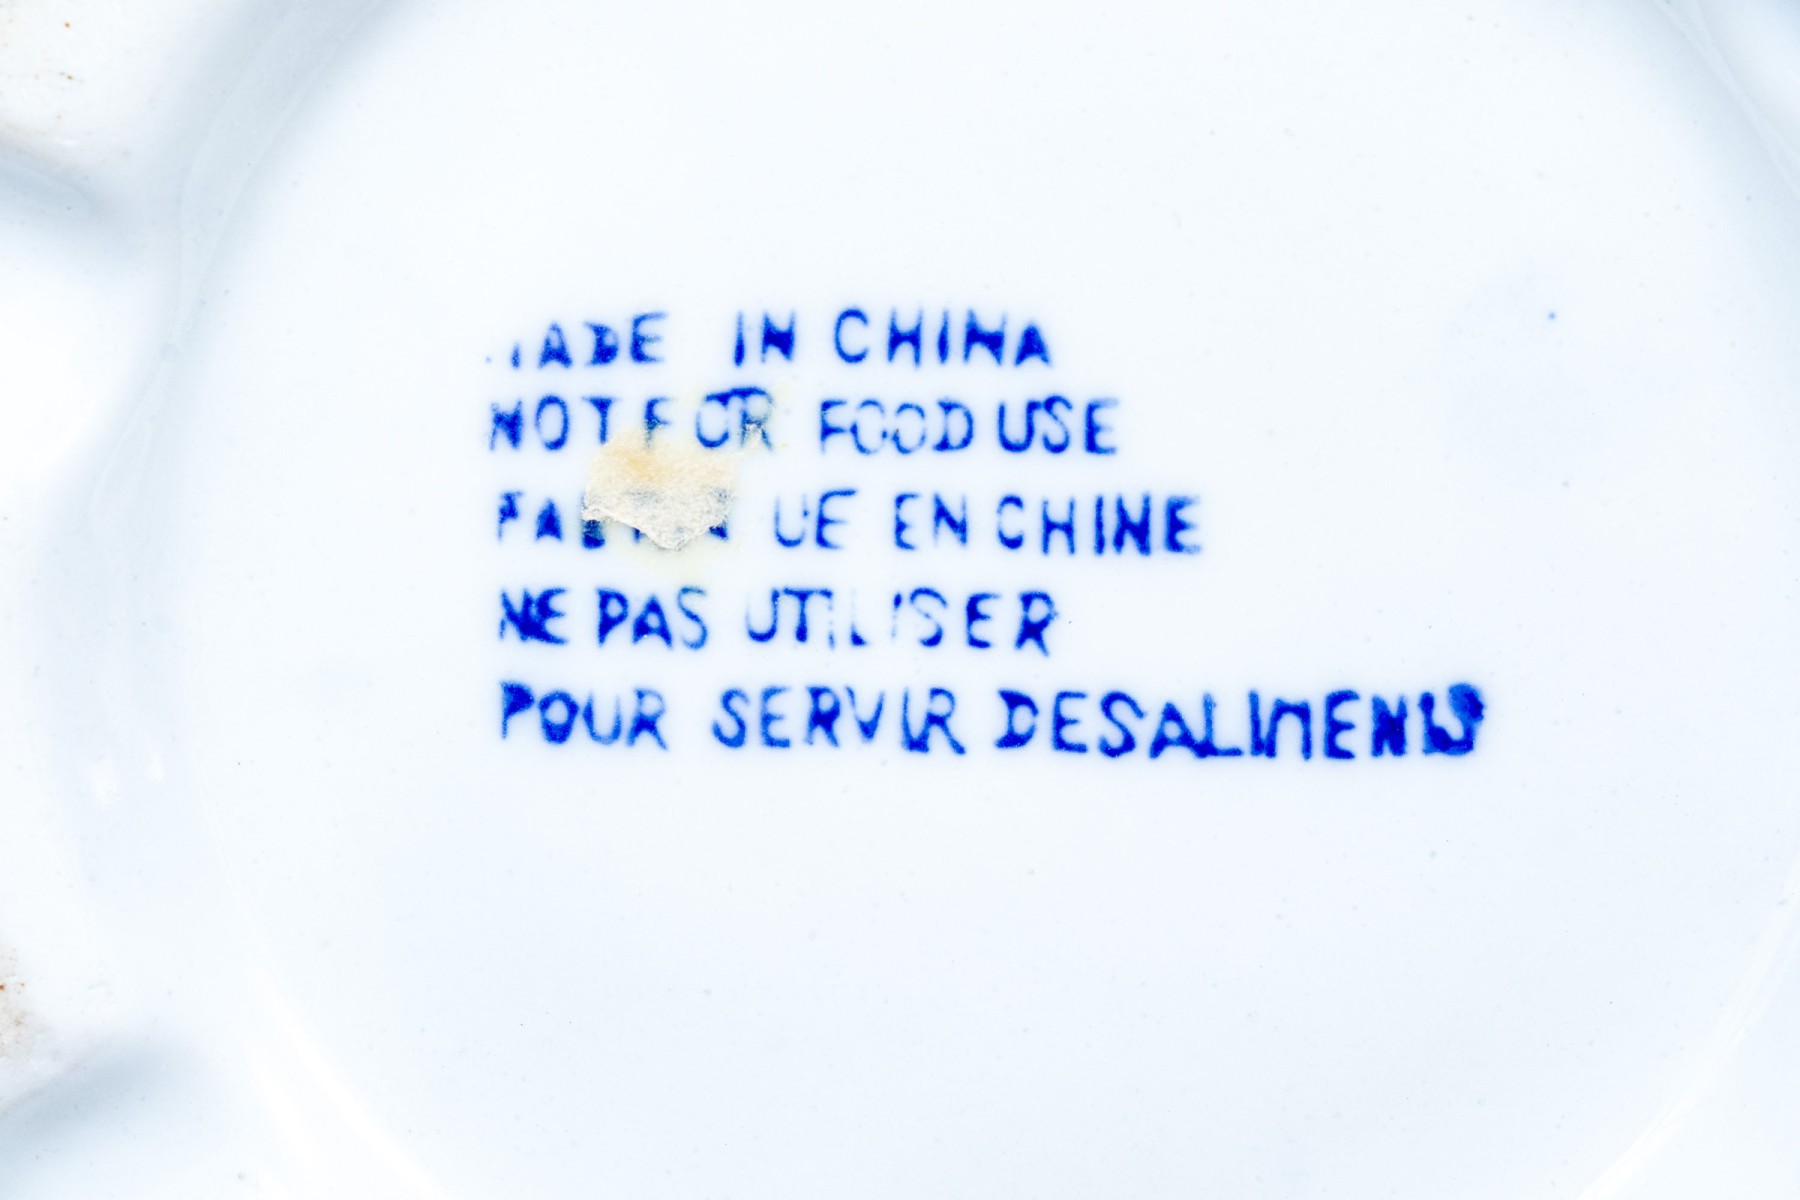 MADE IN CHINA
NOT FOR FOOD USE
EN CHINE
NE PAS UTILISER
POUR SERVIR DES ALIMENTS